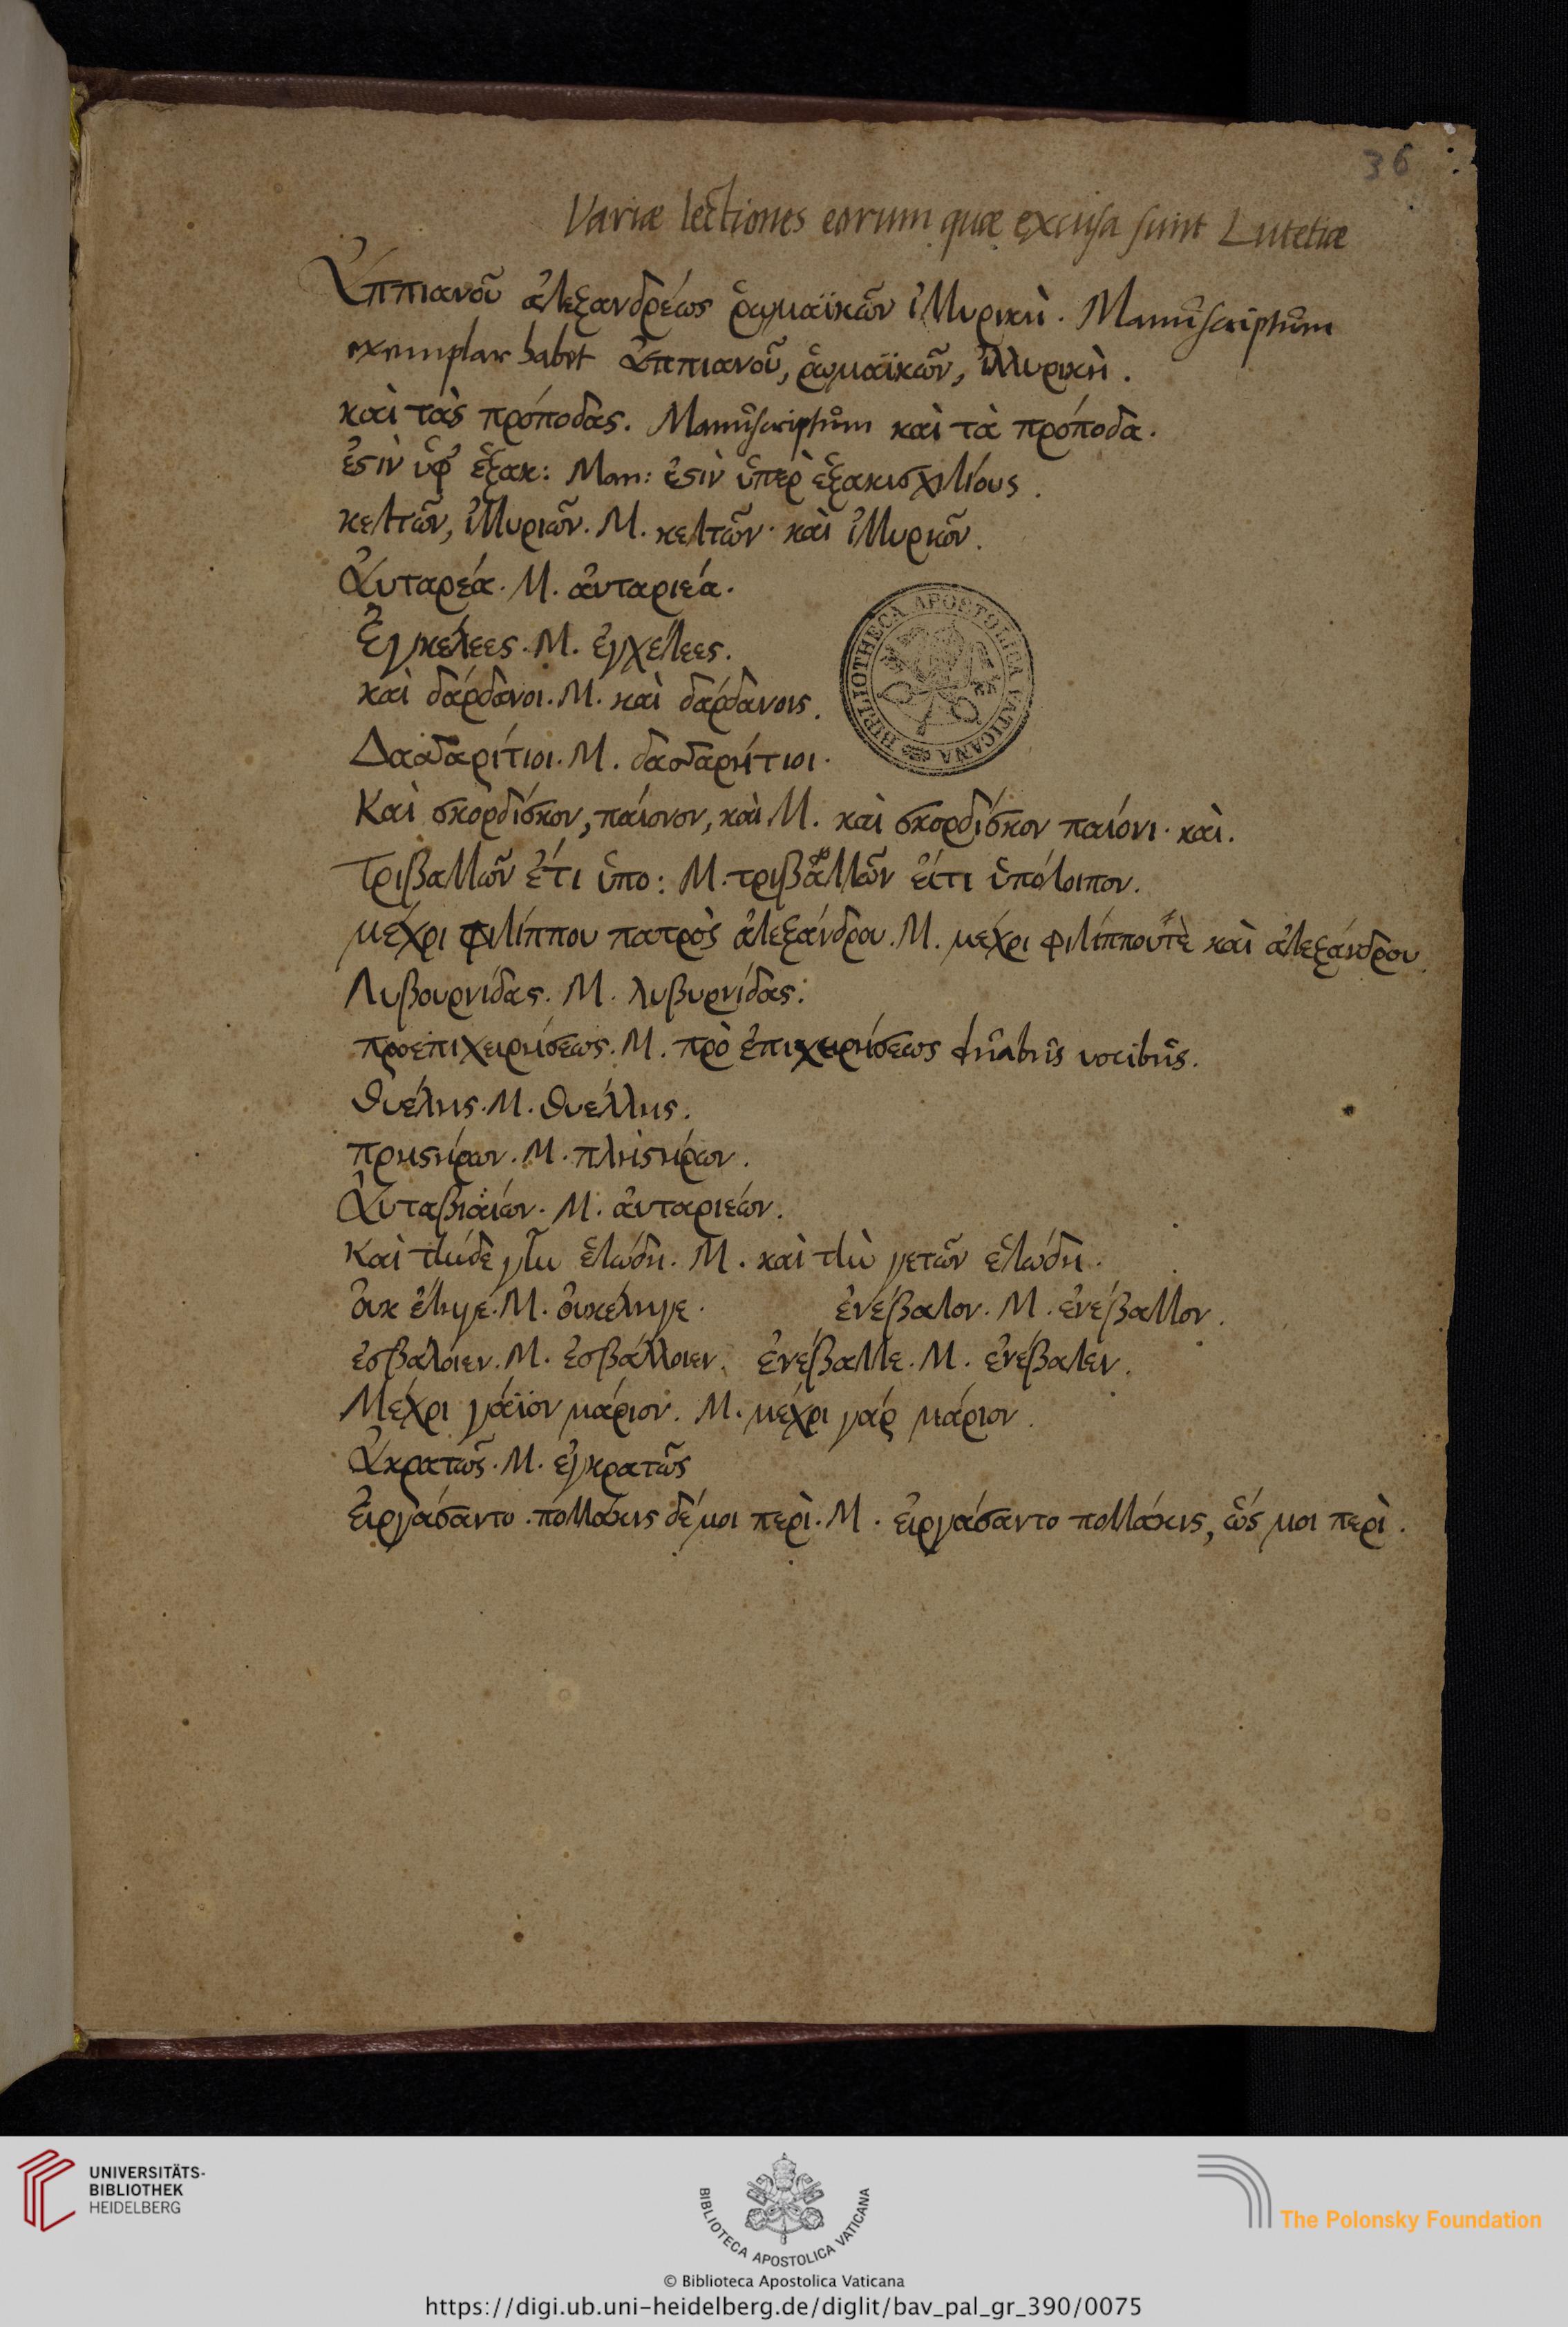 36
Variæ lectiones eorum quæ excusa sunt Lutetiæ
Ἀππιανοῦ ἀλεξανδρέως ῥωμαϊκῶν ἰλλυρικὴ. Manuscriptum
exemplar habet Ἀππιανοῦ, ῥωμαϊκῶν, ἰλλυρικὴ.
καὶ τὰς πρόποδας. Manuscriptum καὶ τὰ πρόποδα.
ἐςὶν ὑφ' ἑξακ: Man: ἐςὶν ὑπὲρ ἑξακισχιλίους.
κελτῶν, ἰλλυριῶν. M. κελτῶν· καὶ ἰλλυριῶν.
Ἀυταρέα. M. ἀυταριεά.
Ἐγκελεες. M. ἐγχέλεες.
καὶ δάρδανοι. M. καὶ δάρδανοις.
Δασσαρίτιοι. M. δασσαρήτιοι.
Καὶ σκορδίσκον, παίονον, καὶ M. καὶ σκορδίσκον παίονι· καὶ.
Τριβαλλῶν ἐτι ὑπο: M. τριβαλλῶν εἴτι ὑπόλοιπον.
μέχρι φιλίππου πατρὸς ἀλεξάνδρου. M. μέχρι φιλίππου τὲ καὶ ἀλεξάνδρου.
Λυβουρνίδας. M. λυβυρνίδας.
προεπιχειρήσεως. M. πρὸ ἐπιχειρήσεως duabus vocibus.
θυέλης. M. θυέλλης.
πρηςήρων. M. πληςήρων.
Ἀυταβιαίων. M. ἀυταριεων.
Καὶ τὴνδε γῆν ἑλώδη. M. καὶ τὴν γετῶν ἑλώδη.
ὀυκ ἔληγε. M. ὀυκέληγε. ἐνέβαλον. M. ἐνέβαλλον.
ἐσβαλοιεν. M. ἐσβάλλοιεν. ἐνέβαλλε. M. ἐνέβαλεν.
Μέχρι γάϊον μάριον. M. μέχρι γὰρ μάριον.
Ἀκρατῶς. M. ἐγκρατῶς
Ἐιργάσαντο. πολλάκις δέ μοι περὶ. M. ἐιργάσαντο πολλάκις, ὥς μοι περὶ.
BIBLIOTHECA APOSTOLICA VATICANA
UNIVERSITÄTS-
BIBLIOTHEK
HEIDELBERG
BIBLIOTECA APOSTOLICA VATICANA
The Polonsky Foundation
© Biblioteca Apostolica Vaticana
https://digi.ub.uni-heidelberg.de/diglit/bav_pal_gr_390/0075